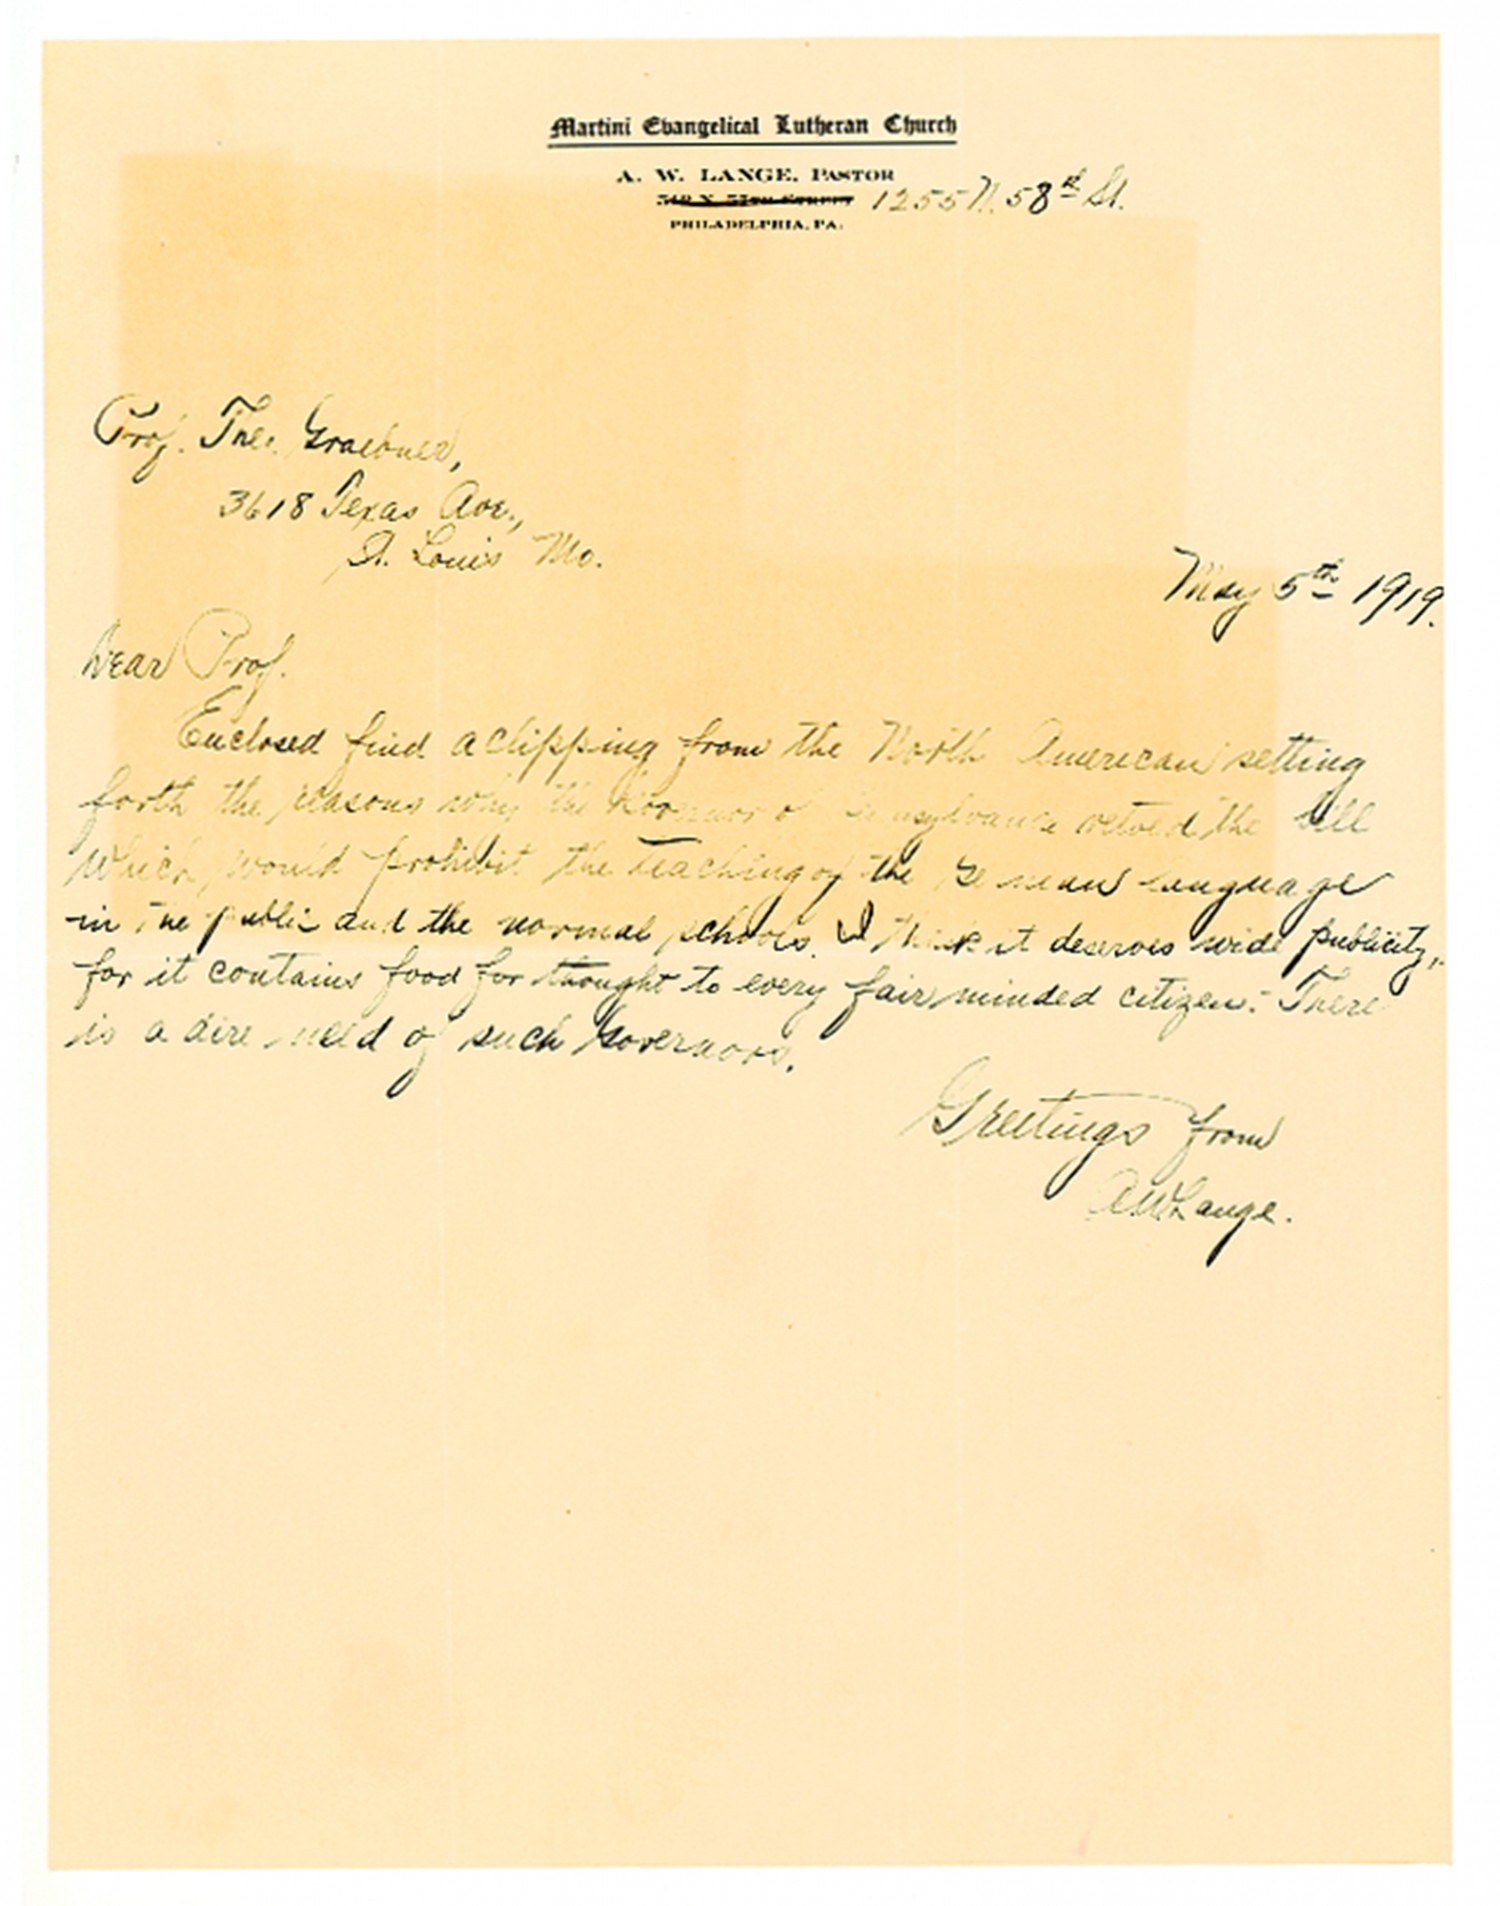 Martini Evangelical Lutheran Church
A. W. LANGE, PASTOR
1255 N. 58th St.
PHILADELPHIA, PA.
Prof. Theo. Graebner,
3618 Texas Ave.,
St. Louis Mo.
May 5th 1919.
Dear Prof.
Enclosed find a clipping from the North American setting
forth the reasons why the Governor of Pennsylvania vetoed the bill
which would prohibit the teaching of the German language
in the public and the normal schools. I think it deserves wide publicity,
for it contains food for thought to every fair minded citizen. - There
is a dire need of such Governors.
Greetings from
AWLange.